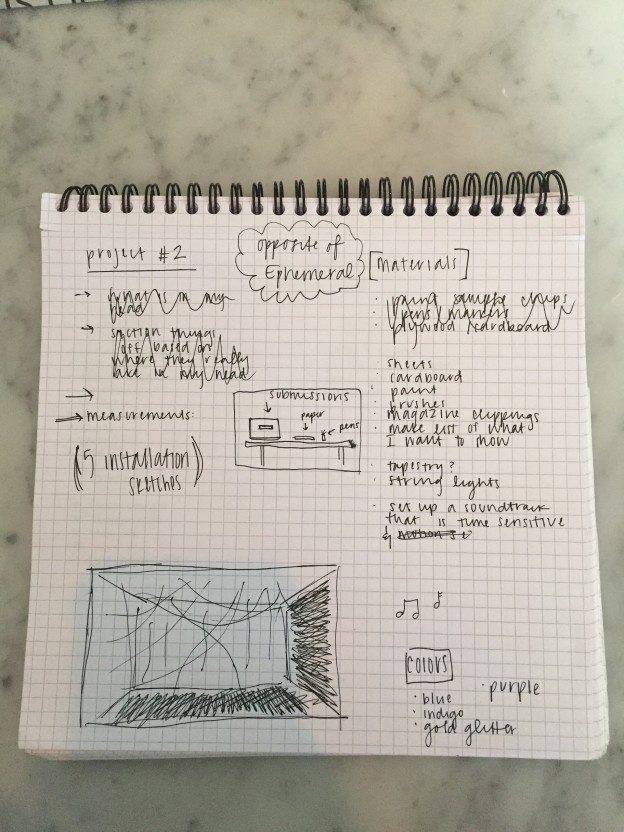 project #2
opposite of
Ephemeral
[materials]
→ what is on my
head
→ section things
off based on
where they really
are in my head
→
⇒ measurements:
(5 installation
sketches)
submissions
paper
pens
· paint sample chips
· pens/markers
· plywood/cardboard
sheets
· cardboard
· paint
· brushes
· magazine clippings
· make list of what
I want to show
· tapestry?
· string lights
· set up a soundtrack
that is time sensitive
colors
· purple
· blue
· indigo
· gold glitter